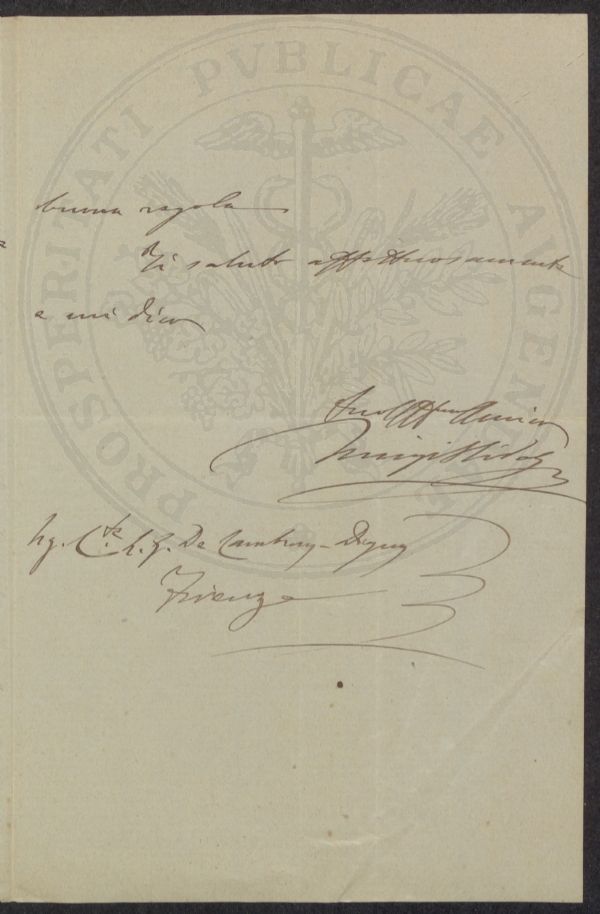 buona regola
Ti saluto affettuosamente
e mi dico
Tuo Aff.mo Amico
Luigi
Sig. C.te L. G. De Cambray-Digny
Firenze
PROSPERITATI PVBLICAE AVGENDAE